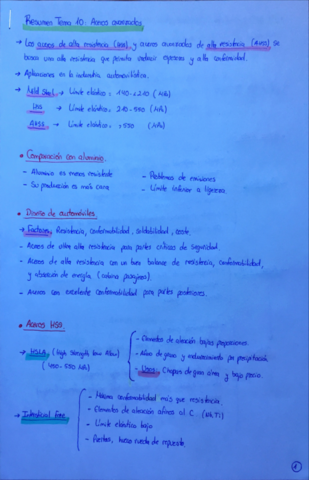 Resumen Tema 10: Aceros avanzados
→ Los aceros de alta resistencia (HSS) y aceros avanzados de alta resistencia (AHSS) se
busca una alta resistencia que permita reducir espesores y alta conformabilidad.
→ Aplicaciones en la industria automovilística.
→ Mild Steel → Límite elástico: 140 - <210 (MPa)
HSS → Límite elástico: 210 - 550 (MPa)
AHSS → Límite elástico: >550 (MPa)
• Comparación con aluminio.
- Aluminio es menos resistente
- Su producción es más cara
- Problemas de emisiones
- Límite inferior a ligereza.
• Diseño de automóviles
→ Factores: Resistencia, conformabilidad, soldabilidad, coste.
- Aceros de ultra alta resistencia para partes críticas de seguridad.
- Aceros de alta resistencia con un buen balance de resistencia, conformabilidad,
y absorción de energía (cabina pasajeros).
- Aceros con excelente conformabilidad para partes
• Aceros HSS
→ HSLA (high Strength low Alloy)
(400-550 MPa)
- Elementos de aleación bajas proporciones.
- Afino de grano y endurecimiento por precipitación.
- Usos: Chapas de gran área y bajo precio.
→ Interstitial Free
- Máxima conformabilidad más que resistencia
- Elementos de aleación afines al C (Nb, Ti)
- Límite elástico bajo
- Puertas, hueco rueda de repuesto.
1